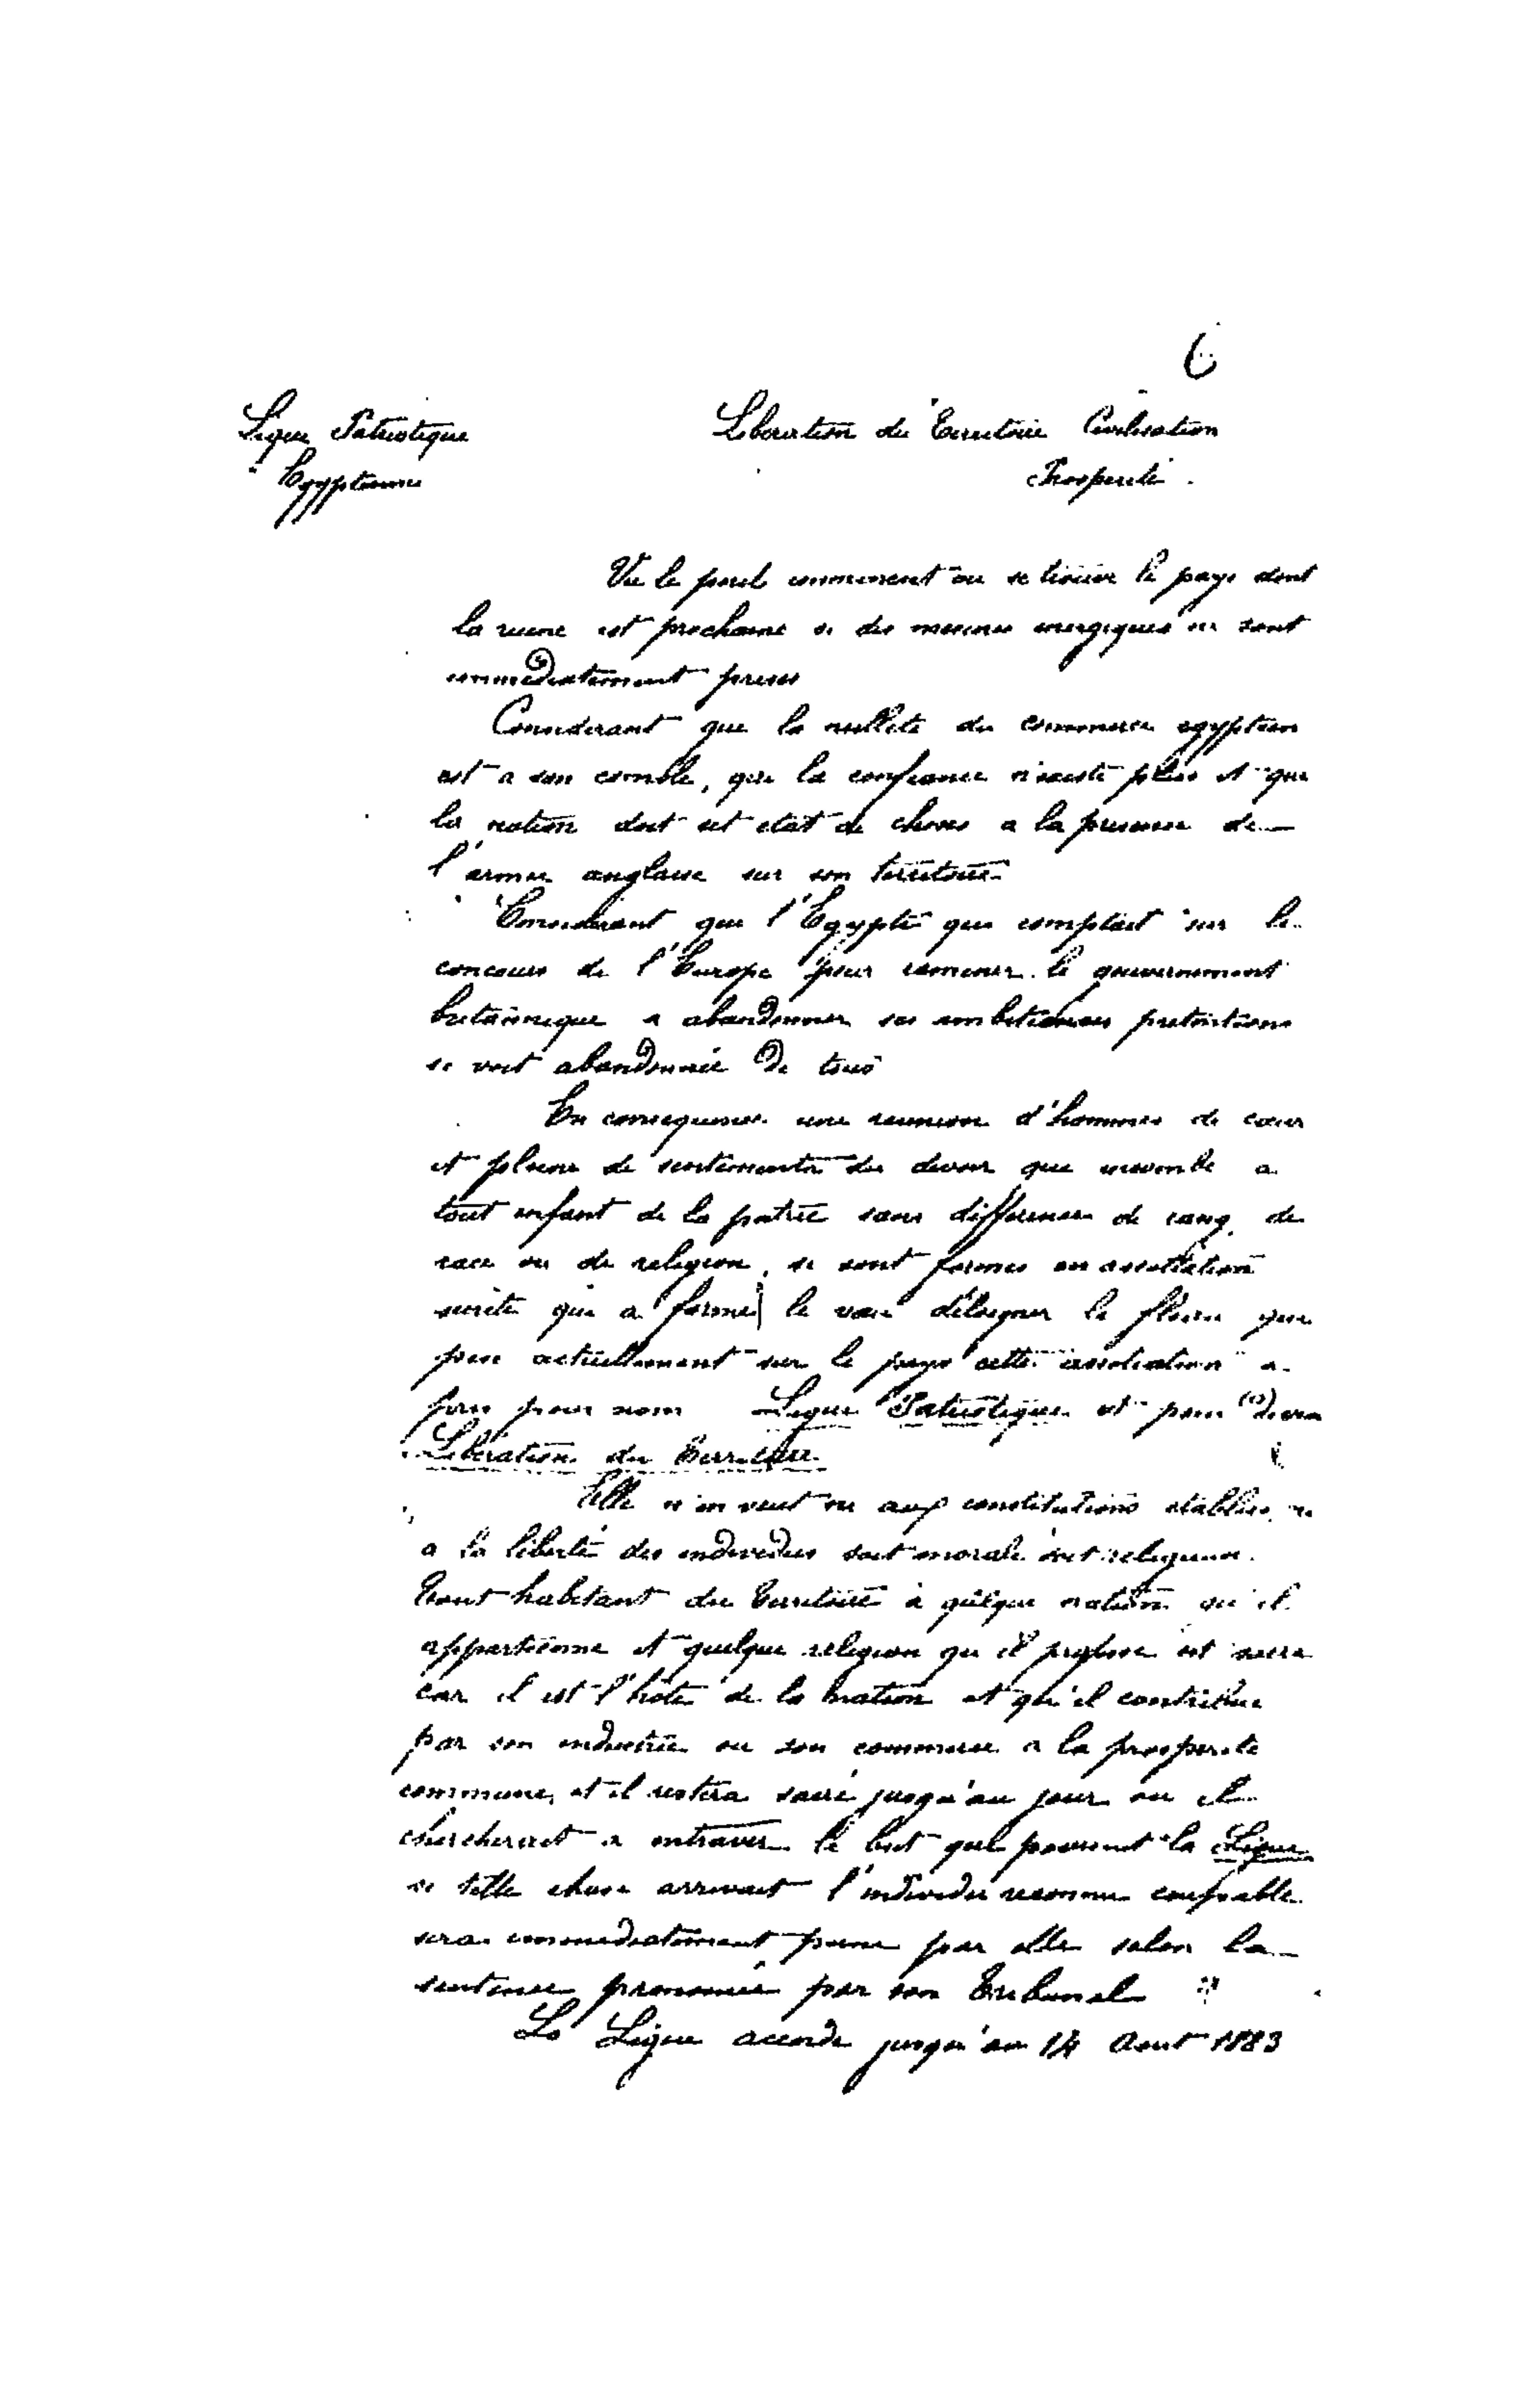 6
Ligue Patriotique
Egyptienne
Liberation du Territoire Civilisation
Prosperité.
Vu le peril imminent ou se trouve le pays dont
la ruine est prochaine si des mesures energiques ne sont
immediatement prises
Considerant que la nullité du commerce egyptien
est a son comble, que la confiance n'existe plus et que
la nation doit cet etat de choses a la presence de
l'armee anglaise sur son territoire
Considerant que l'Egypte qui comptait sur le
concours de l'Europe pour ramener le gouvernement
britannique a abandonner ses ambitieuses pretentions
se voit abandonnée de tous
En consequence une reunion d'hommes de cœur
et pleins de sentiments du devoir que incombe a
tout enfant de la patrie sans difference de rang, de
race ou de religion, se sont formes en association
secrete qui a formé le vœu d'éloigner le fleau qui
pese actuellement sur le pays cette association a
pris pour nom Ligue Patriotique et pour devise
Liberation du Territoire
Elle n'en veut ni aux constitutions etablies, ni
a la liberté des individus soit morale soit religieuse.
Tout habitant du Territoire à quelque nation qu'il
appartienne et quelque religion qu'il professe est sacré
car il est l'hôte de la nation et qu'il contribue
par son industrie ou son commerce a la prosperite
commune, et il restera sacré jusqu'au jour ou il
chercherait a entraver le but que poursuit la Ligue
si telle chose arrivait l'individu reconnu coupable
sera immediatement puni par elle selon la
sentence prononcée par son Tribunal
La Ligue accorde jusqu'au 14 Aout 1883